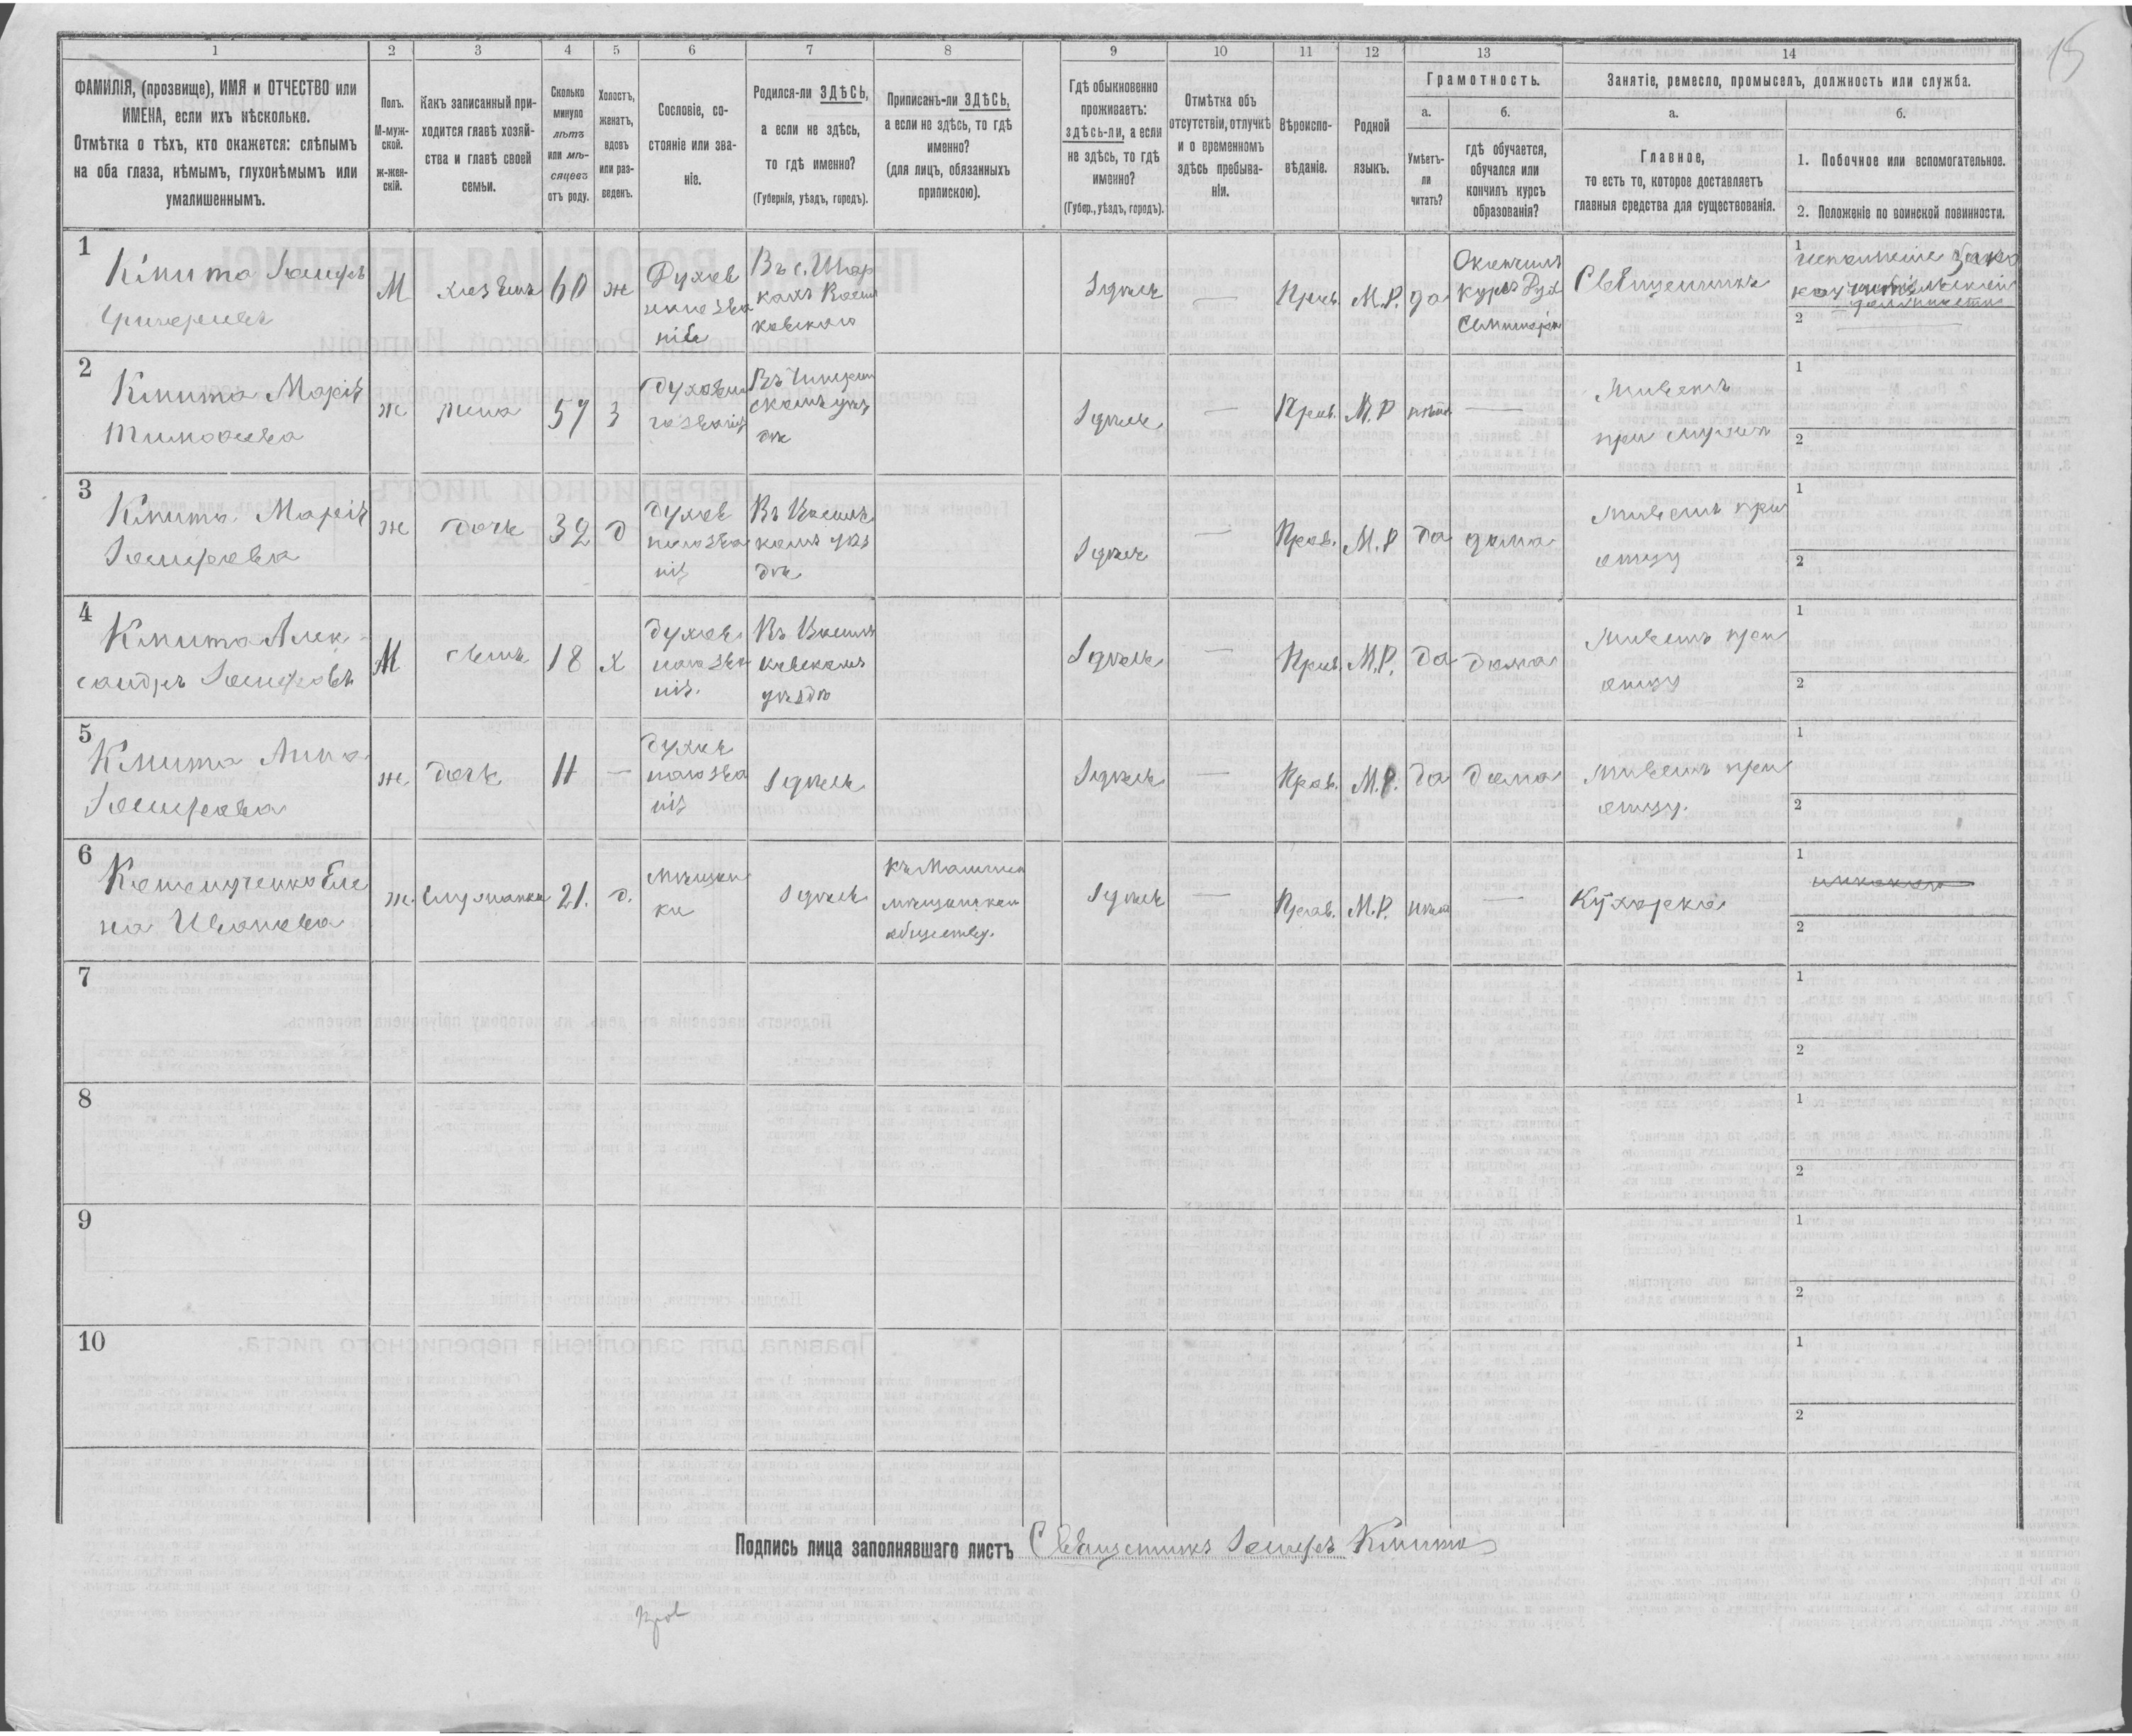 15
1
2
3
4
5
6
7
8
9
10
11
12
13
14
ФАМИЛІЯ, (прозвище), ИМЯ и ОТЧЕСТВО или
ИМЕНА, если ихъ нѣсколько.
Отмѣтка о тѣхъ, кто окажется: слѣпымъ
на оба глаза, нѣмымъ, глухонѣмымъ или
умалишеннымъ.
Полъ.
М-муж-
ской.
ж-жен-
скій.
Какъ записанный при-
ходится главѣ хозяй-
ства и главѣ своей
семьи.
Сколько
минуло
лѣтъ
или мѣ-
сяцевъ
отъ роду.
Холостъ,
женатъ,
вдовъ
или раз-
веденъ.
Сословіе, со-
стояніе или зва-
ніе.
Родился-ли ЗДѢСЬ,
а если не здѣсь,
то гдѣ именно?
(Губернія, уѣздъ, городъ).
Приписанъ-ли ЗДѢСЬ,
а если не здѣсь, то гдѣ
именно?
(для лицъ, обязанныхъ
припискою).
Гдѣ обыкновенно
проживаетъ:
здѣсь-ли, а если
не здѣсь, то гдѣ
именно?
(Губер., уѣздъ, городъ).
Отмѣтка объ
отсутствіи, отлучкѣ
и о временномъ
здѣсь пребыва-
ніи.
Вѣроиспо-
вѣданіе.
Родной
языкъ.
Грамотность.
а.
б.
Умѣетъ-
ли
читать?
гдѣ обучается,
обучался или
кончилъ курсъ
образованія?
Занятіе, ремесло, промыселъ, должность или служба.
а.
б.
Главное,
то есть то, которое доставляетъ
главныя средства для существованія.
1. Побочное или вспомогательное.
2. Положеніе по воинской повинности.
1
Кмита Іосифъ
Григорьевъ
М
хозяинъ
60
ж
Духов
наго зва
нія
Въ с. Шар
кахъ Васил
ковскаго
Здѣсь
—
Прав.
М.Р.
да
Окончилъ
курсъ Дух
Семинаріи
Священникъ
1
2
2
Кмита Марія
Тимофеева
ж
жена
57
З
духовна
го званія
Въ
скомъ уѣз
дѣ
Здѣсь
—
Прав.
М.Р
нѣтъ
—
Живетъ
при мужѣ
1
2
3
Кмита Марія
Іосифова
ж
дочь
32
д
духов
наго зва
нія
Въ Васильк
комъ уѣз
дѣ
Здѣсь
—
Прав.
М.Р
да
дома
Живетъ при
отцу
1
2
4
Кмита Алек
сандръ Іосифовъ
М
сынъ
18
х
духов
наго зва
нія.
Въ Василь
ковскомъ
уѣздѣ
Здѣсь
—
Прав.
М.Р.
да
дома
Живетъ при
отцу
1
2
5
Кмита Анна
Іосифова
ж
дочь
11
—
духов
наго зва
нія
Здѣсь
Здѣсь
—
Прав.
М.Р.
да
дома
Живетъ при
отцу.
1
2
6
Еле
на Иванова
ж.
служанка
21.
д.
мѣщан
ка
Здѣсь
мѣщанском
обществу.
Здѣсь
—
Прав.
М.Р.
нѣтъ
—
Кухарка
1
2
7
1
2
8
1
2
9
1
2
10
1
2
Подпись лица заполнявшаго листъ Священникъ Іосифъ Кмита